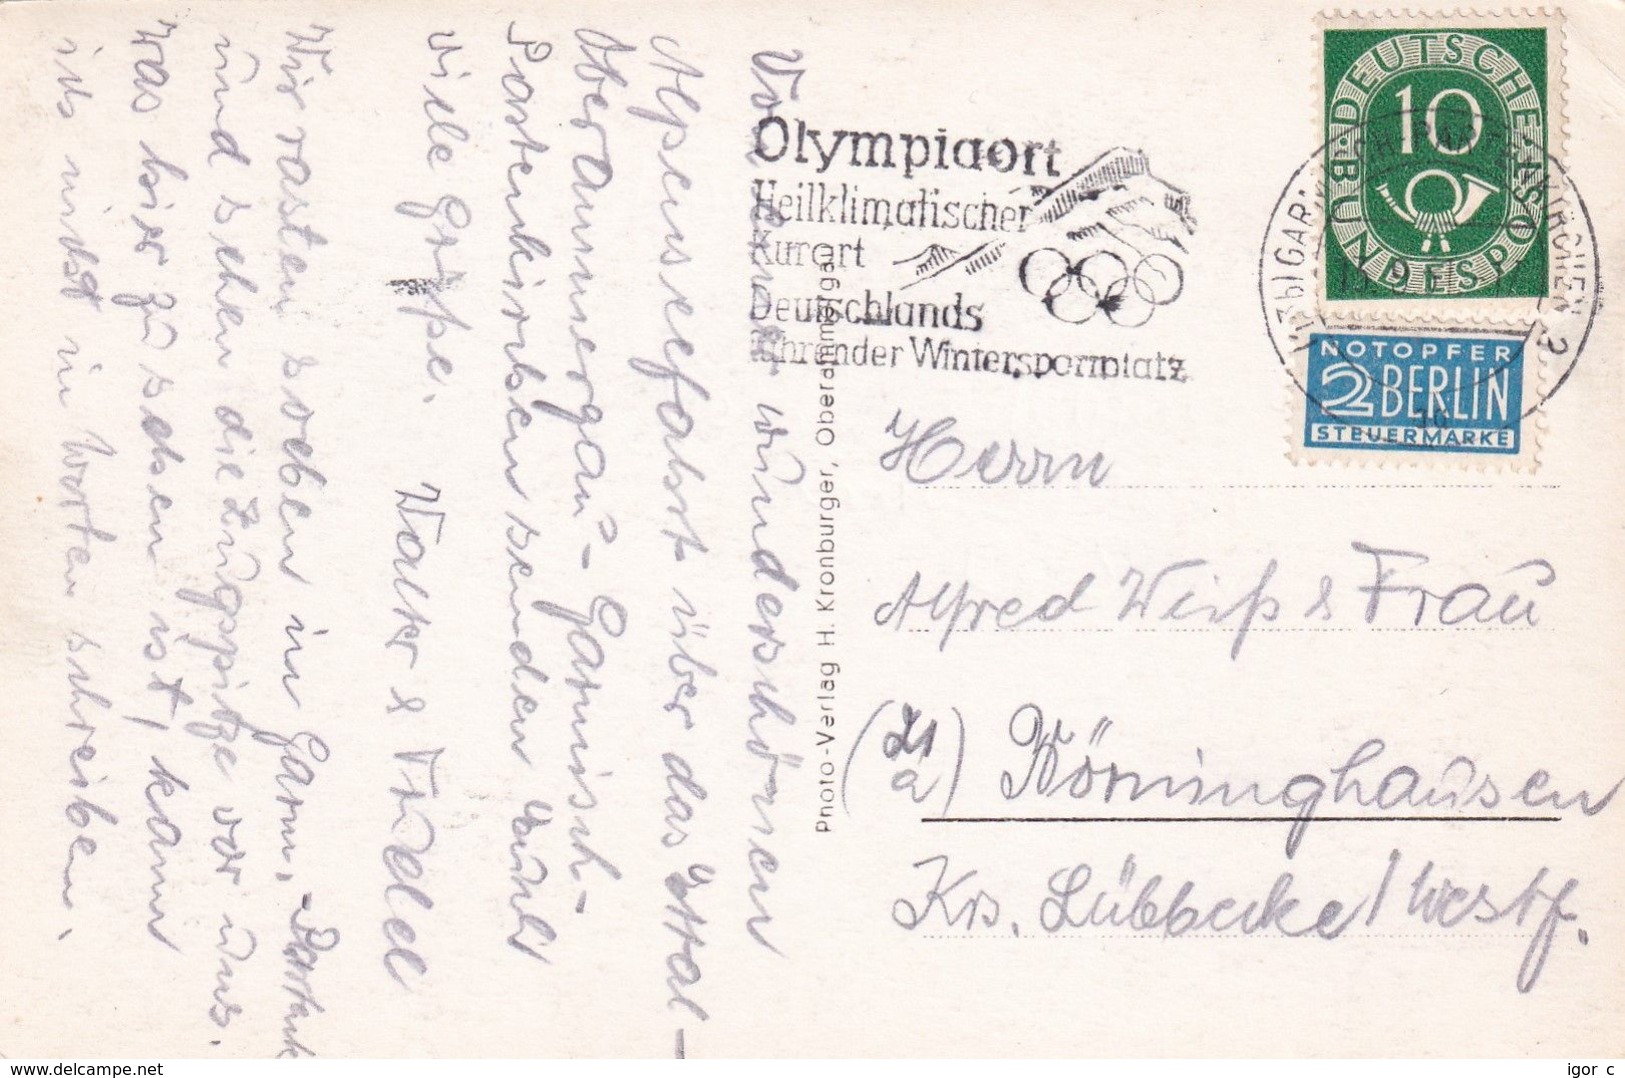 Von einer wunderschönen
Alpenseefahrt über das Ettal-
Oberammergau-Garmisch-
Partenkirchen senden Euch
viele Grüße.
Walter & Friedel
Wir rasten soeben in Garm.-Partenk
und sehen die Zugspitze vor uns.
Was hier zu sehen ist, kann
ich nicht in Worten schreiben.
Photo-Verlag H. Kronburger, Oberammergau
Olympiaort
Heilklimatischer
Kurort
Deutschlands
führender Wintersportplatz
DEUTSCHE BUNDESPOST
10
GARMISCH-PARTENKIRCHEN 2
NOTOPFER
2 BERLIN
STEUERMARKE
Herrn
Alfred Weiß & Frau
(21a) Börninghausen
Krs. Lübbecke/Westf.
delcampe.net
igor c